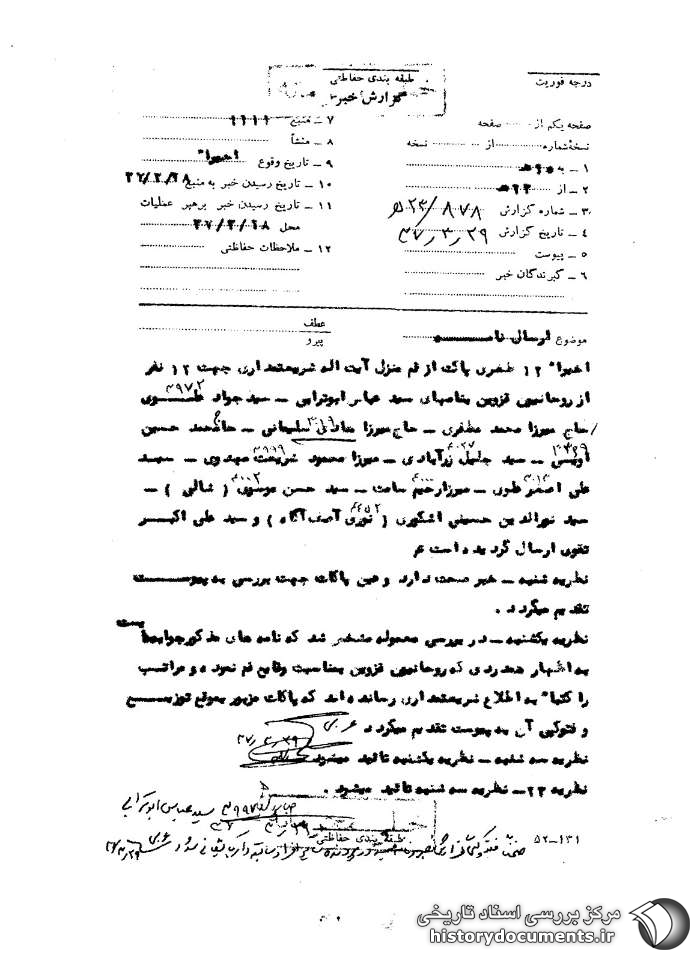 طبقه بندی حفاظتی
گزارش خبر
درجه فوریت
صفحه یکم از ........ صفحه
نسخه‌شماره ........ از ........ نسخه
۱ ـ به
۲ ـ از
۳ ـ شماره گزارش ۲۳/۸۷۸ ه
۴ ـ تاریخ گزارش ۳۷٫۳٫۲۹
۵ ـ پیوست
۶ ـ گیرندگان خبر
۷ ـ منبع ۱۱۱۱
۸ ـ منشأ
۹ ـ تاریخ وقوع اخیرا"
۱۰ ـ تاریخ رسیدن خبر به منبع ۳۷/۳/۲۸
۱۱ ـ تاریخ رسیدن خبر برهبر عملیات
محل ۳۷/۳/۲۸
۱۲ ـ ملاحظات حفاظتی
موضوع ارسال نامه
عطف
پیرو
اخیرا" ۱۲ طغری پاکت از قم منزل آیت اله شریعتمداری جهت ۱۲ نفر
از روحانیون قزوین بنامهای سید عباس ابوترابی ـ سید جواد علوی
حاج میرزا محمد مظفری ـ حاج میرزا سلیمانی ـ حاج محمد حسین
اویسی ـ سید جلیل زرآبادی ـ میرزا محمود شریعت مهدوی ـ سید
علی اصغر علوی ـ میرزا رحیم سامت ـ سید حسن موسوی ( شالی ) ـ
سید نورالدین حسینی اشکوری ( نوری آصف آگاه ) و سید علی اکبر
تقوی ارسال گردیده است
نظریه شنبه ـ خبر صحت دارد و عین پاکات جهت بررسی به پیوست
تقدیم میگردد .
نظریه یکشنبه ـ در بررسی معموله مشخص شد که نامه های مذکور جوابیه‌ایست
به اظهار همدردی که روحانیون قزوین بمناسبت وقایع قم نموده و مراتب
را کتبا" به اطلاع شریعتمداری رسانده اند که پاکات مزبور بموقع توزیع
و فتوکپی آن به پیوست تقدیم میگردد
۳۷٫۳٫۲۹
نظریه سه شنبه ـ نظریه یکشنبه تائید میشود
نظریه ۲۳ـ نظریه سه شنبه تائید میشود .
سید عباس ابوترابی
طبقه بندی حفاظتی
۵۲-۱۳۱
مرکز بررسی اسناد تاریخی
historydocuments.ir